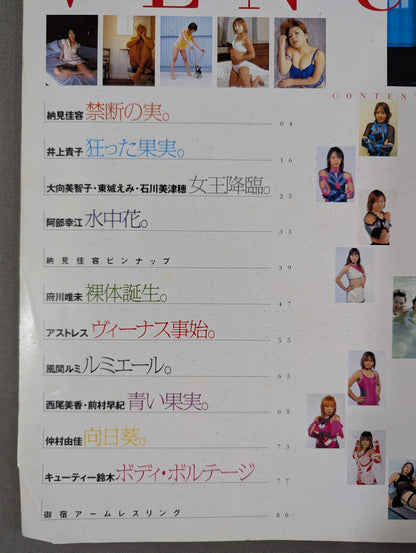 CONTENT
納見佳容 禁断の実。 04
井上貴子 狂った果実。 16
大向美智子・東城えみ・石川美津穂 女王降臨。 23
阿部幸江 水中花。 33
納見佳容ピンナップ 39
府川唯未 裸体誕生。 47
アストレス ヴィーナス事始。 55
風間ルミ ルミエール。 63
西尾美香・前村早紀 青い果実。 68
仲村由佳 向日葵。 73
キューティー鈴木 ボディ・ボルテージ 77
御宿アームレスリング 80